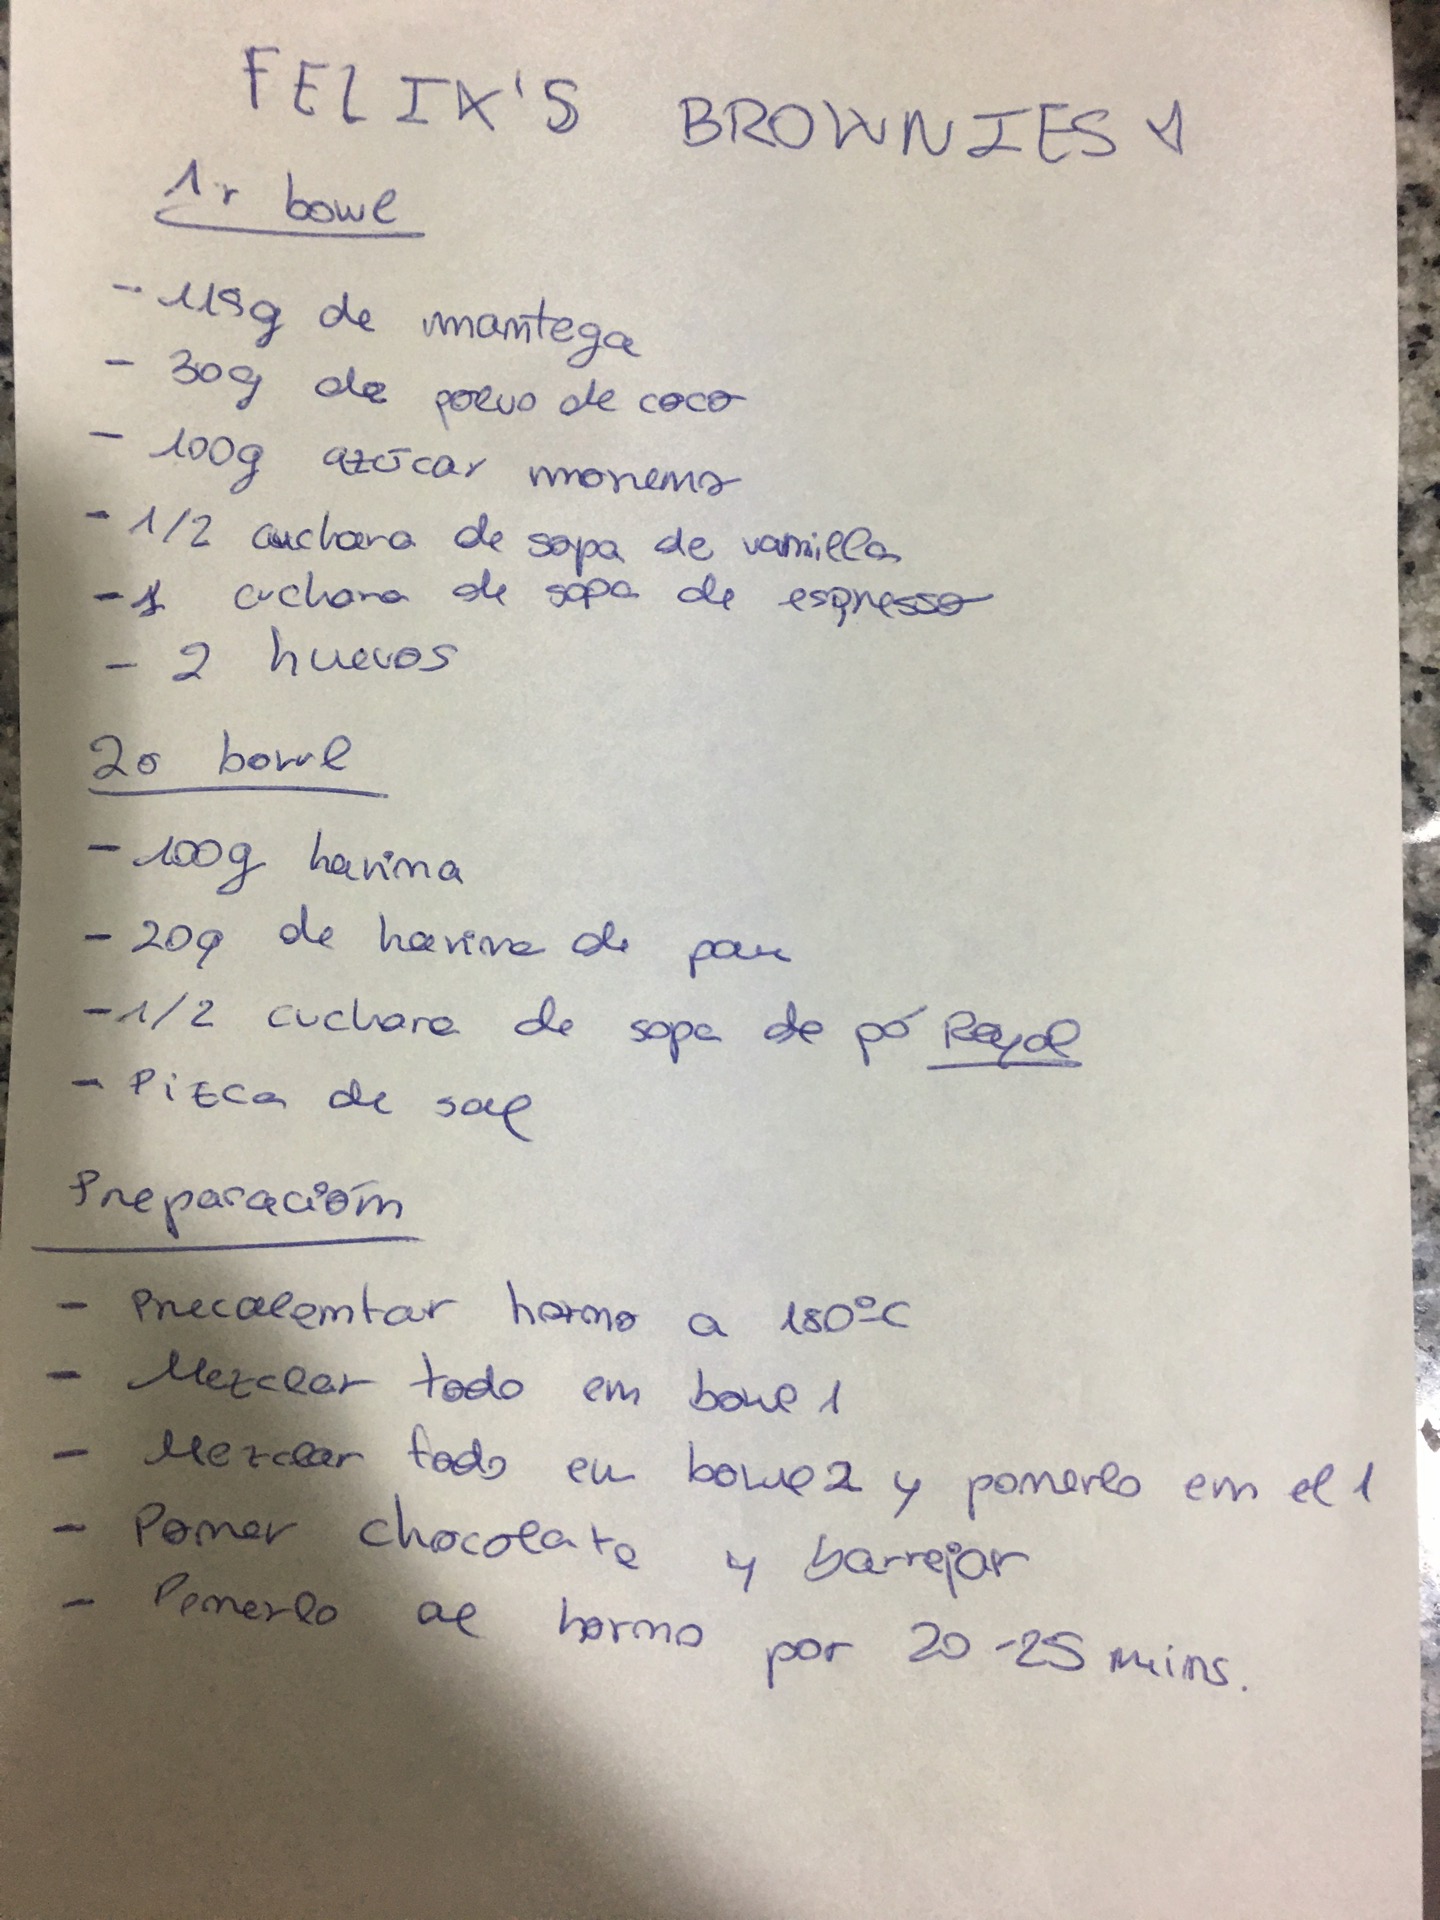 FELIX'S BROWNIES
1r bowl
- 115g de mantega
- 30g de polvo de coco
- 100g azúcar moreno
- 1/2 cuchara de sopa de vainilla
- 1 cuchara de sopa de espresso
- 2 huevos
2o bowl
- 100g harina
- 20g de harina de pan
- 1/2 cuchara de sopa de pó Royal
- Pizca de sal
Preparación
- Precalentar horno a 180ºC
- Mezclar todo en bowl 1
- Mezclar todo en bowl 2 y ponerlo en el 1
- Poner chocolate y barrejar
- Ponerlo al horno por 20-25 mins.